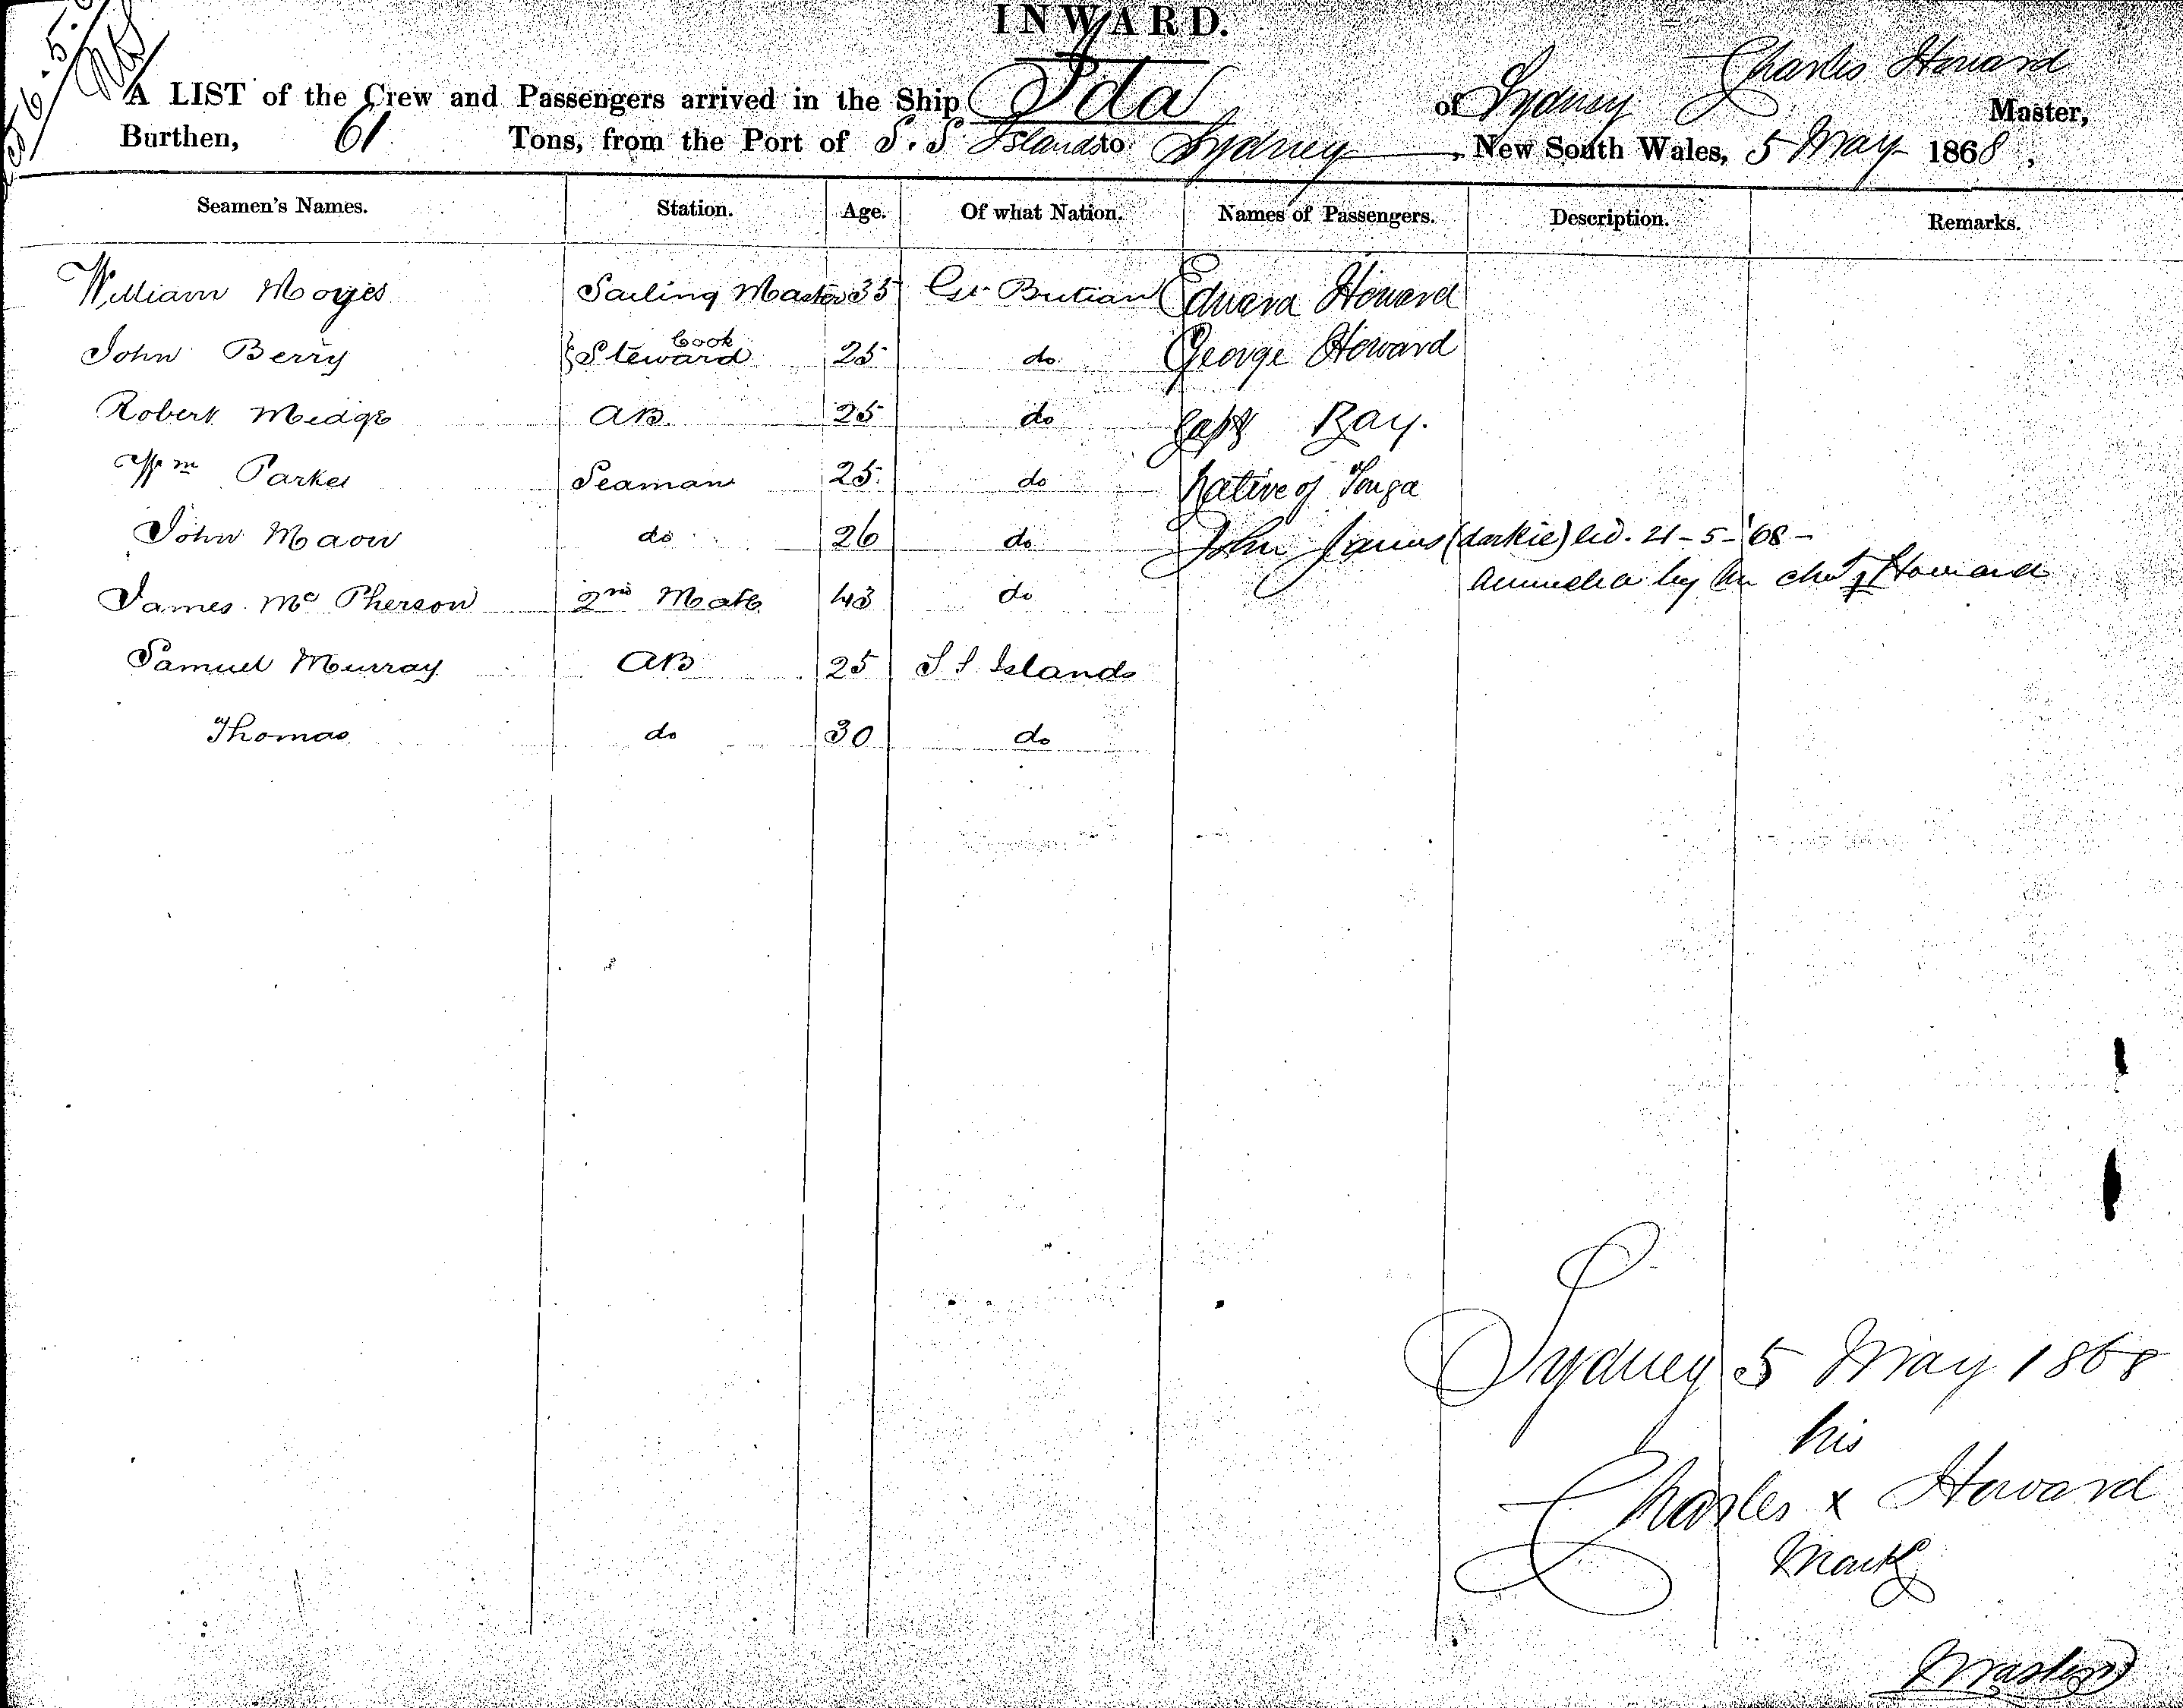 INWARD.
A LIST of the Crew and Passengers arrived in the Ship Ida of Sydney Charles Howard Master,
Burthen, 61 Tons, from the Port of S.S Islands to Sydney, New South Wales, 5 May 1868,
Seamen's Names. Station. Age. Of what Nation. Names of Passengers. Description. Remarks.
William Moyes Sailing Master 35 Gr Britian Edward Howard
John Berry } Cook Steward 25 do George Howard
Robert Midge AB 25 do Capt Ray.
Wm Parker Seaman 25 do Native of Tonga
John Maow do 26 do John James (darkie) 21-5-'68-
James Mc Pherson 2nd Mate 43 do by Howard
Samuel Murray AB 25 S S Islands
Thomas do 30 do
Sydney 5 May 1868
his
Charles x Howard
Mark
Master